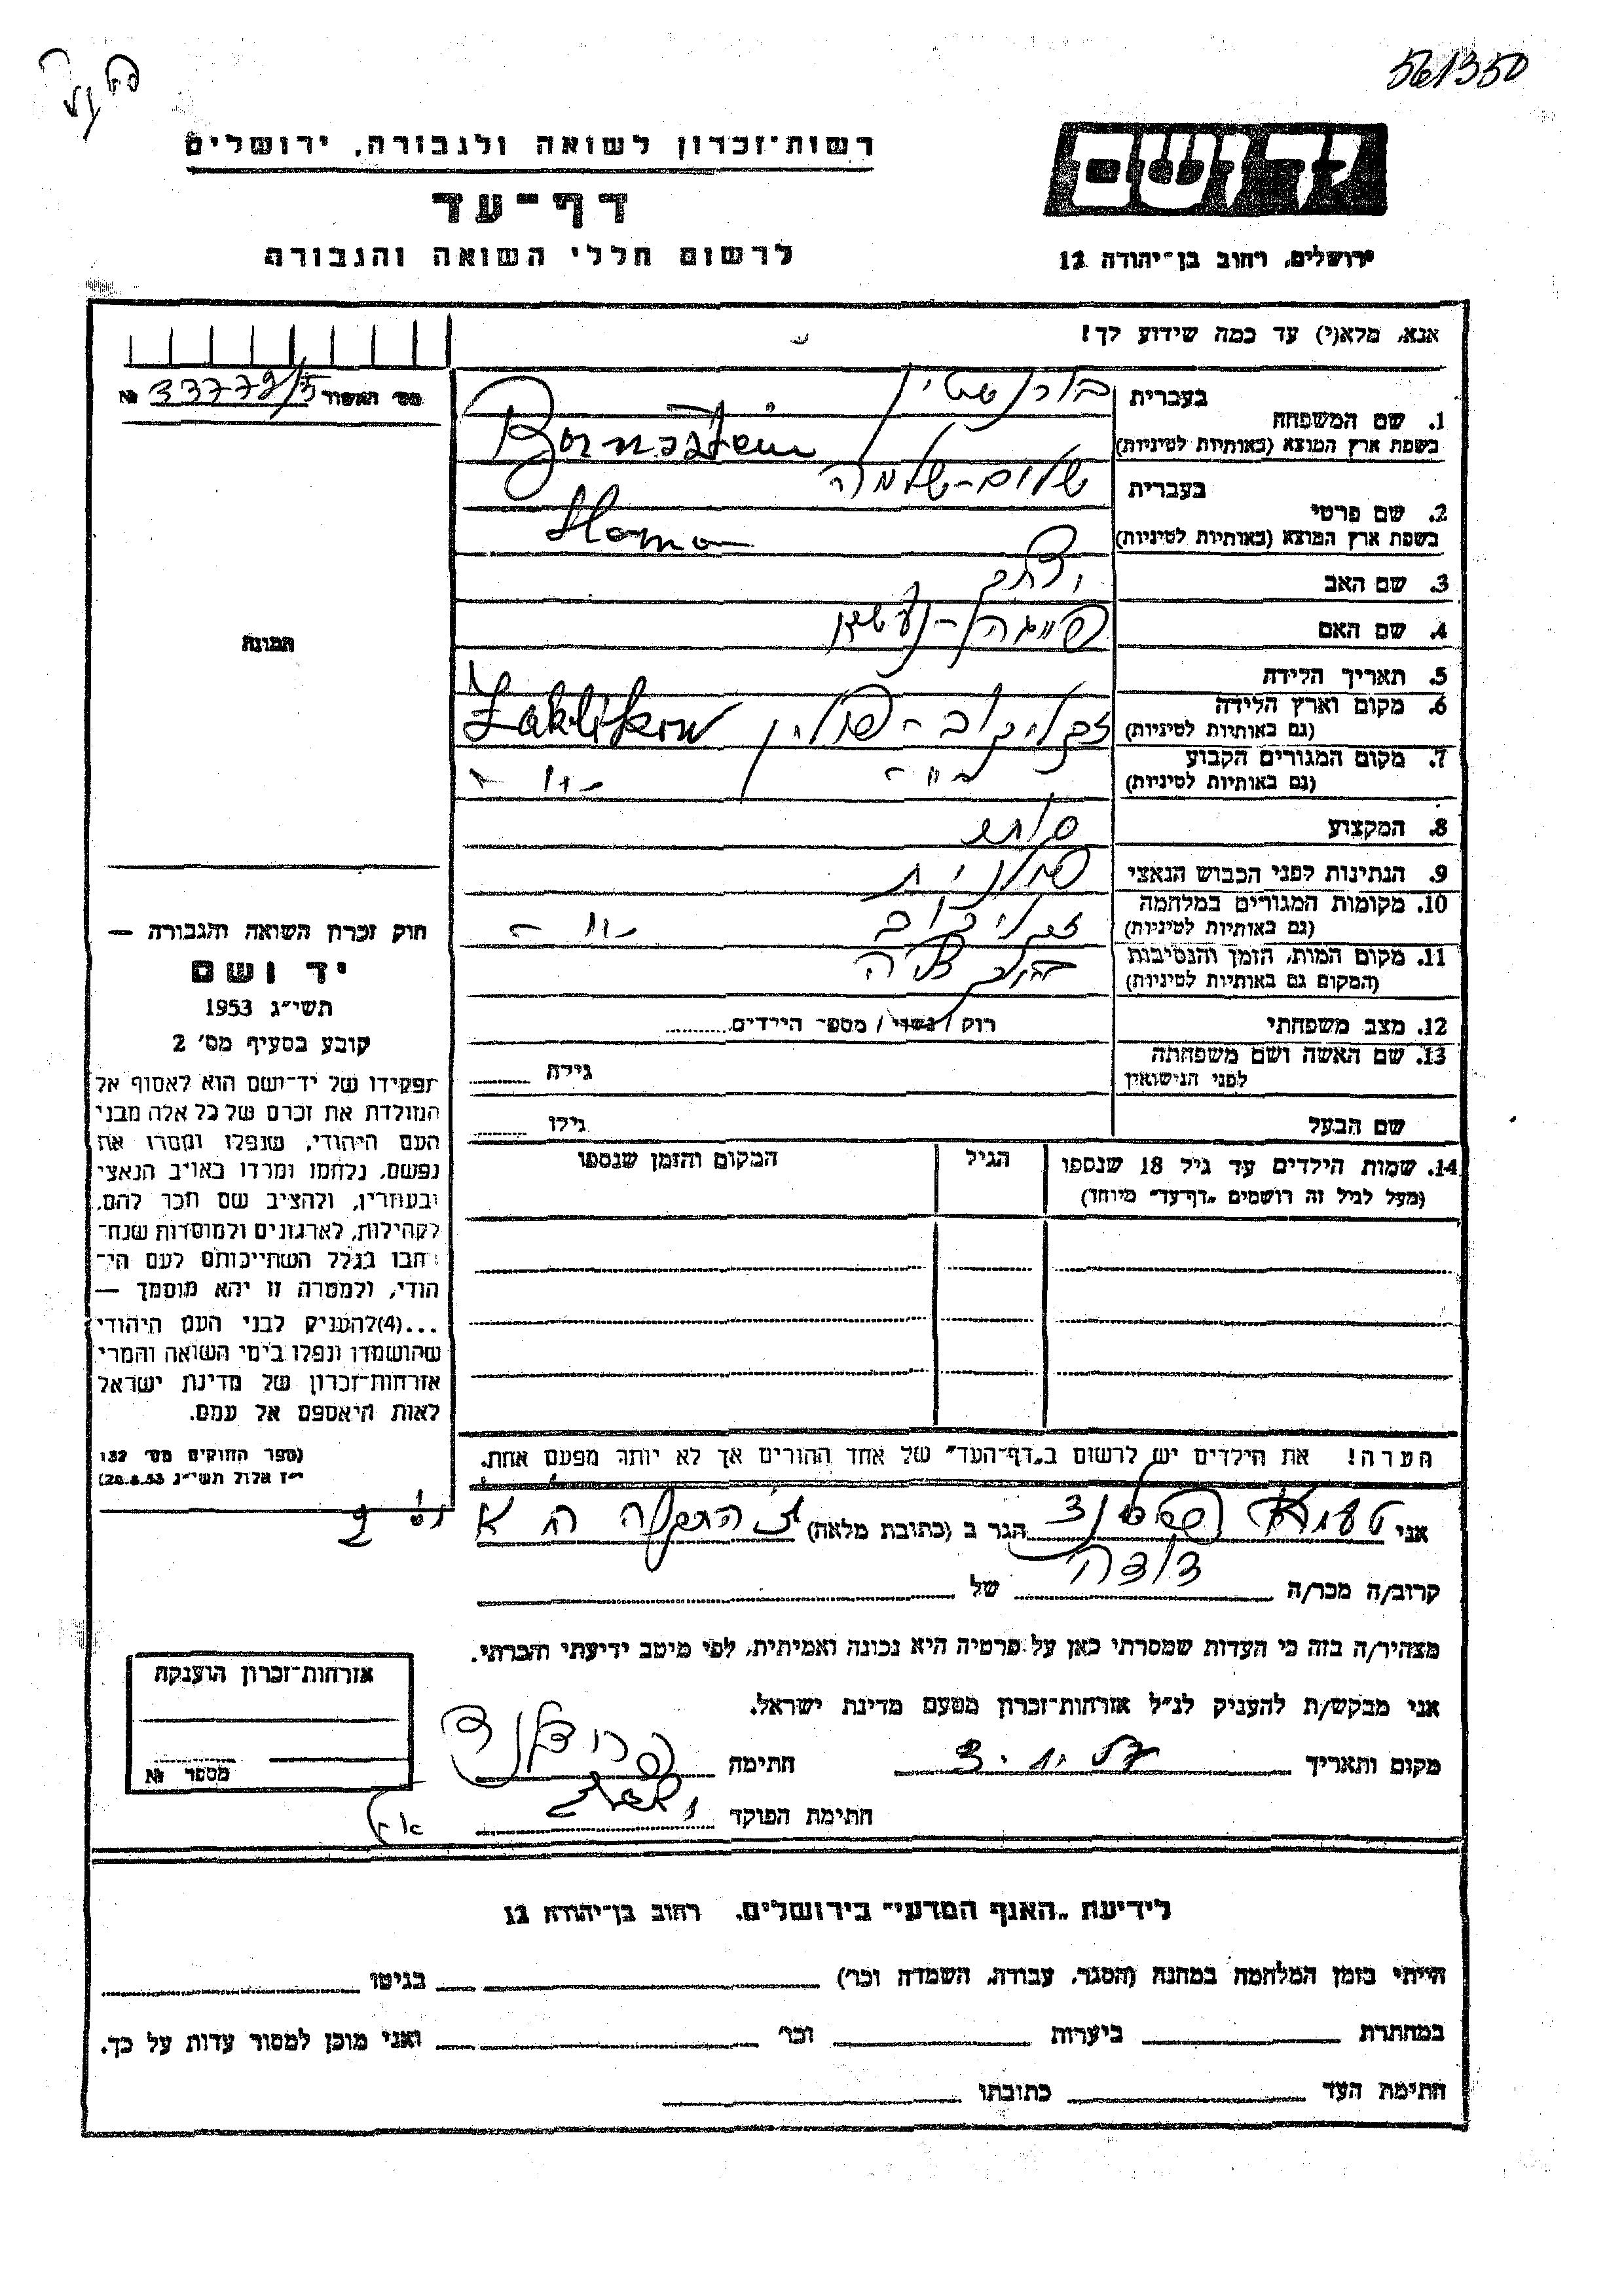 561350
יד ושם
רשות-זכרון לשואה ולגבורה, ירושלים
דף-עד
לרשום חללי השואה והגבורה
ירושלים, רחוב בן-יהודה 12
אנא, מלא(י) עד כמה שידוע לך!
מס' האשור 33772/5 №
1. שם המשפחה
בעברית בורנשטיין
בשפת ארץ המוצא (באותיות לטיניות) Bornsztein
2. שם פרטי
בעברית שלום-שלמה
בשפת ארץ המוצא (באותיות לטיניות)
3. שם האב
4. שם האם
תמונה
5. תאריך הלידה
6. מקום וארץ הלידה
(גם באותיות לטיניות) זקליקוב - פולין Zaklikow
7. מקום המגורים הקבוע
(גם באותיות לטיניות) -"- -"-
8. המקצוע סוחר
9. הנתינות לפני הכבוש הנאצי פולנית
10. מקומות המגורים במלחמה
(גם באותיות לטיניות) זקליקוב -"-
11. מקום המות, הזמן והנסיבות
(המקום גם באותיות לטיניות)
12. מצב משפחתי רוק / נשוי / מספר הילדים
13. שם האשה ושם משפחתה
לפני הנישואין גילה
שם הבעל גילו
14. שמות הילדים עד גיל 18 שנספו הגיל המקום והזמן שנספו
(מעל לגיל זה רושמים „דף-עד" מיוחד)
חוק זכרון השואה והגבורה —
יד ושם
תשי"ג 1953
קובע בסעיף מס' 2
תפקידו של יד-ושם הוא לאסוף אל
המולדת את זכרם של כל אלה מבני
העם היהודי, שנפלו ומסרו את
נפשם, נלחמו ומרדו באויב הנאצי
ובעוזריו, ולהציב שם וזכר להם,
לקהילות, לארגונים ולמוסדות שנח-
רבו בגלל השתייכותם לעם הי-
הודי, ולמטרה זו יהא מוסמך —
...(4)להעניק לבני העם היהודי
שהושמדו ונפלו בימי השואה והמרי
אזרחות-זכרון של מדינת ישראל
לאות היאספם אל עמם.
(ספר החוקים מס' 132
י"ז אלול תשי"ג 28.8.53)
הערה! את הילדים יש לרשום ב„דף-העד" של אחד ההורים אך לא יותר מפעם אחת.
אני הגר ב (כתובת מלאה)
קרוב/ה מכר/ה דודה של
מצהיר/ה בזה כי העדות שמסרתי כאן על פרטיה היא נכונה ואמיתית, לפי מיטב ידיעתי והכרתי.
אני מבקש/ת להעניק לנ"ל אזרחות-זכרון מטעם מדינת ישראל.
מקום ותאריך חתימה
חתימת הפוקד
אזרחות-זכרון הוענקה
מספר №
לידיעת „האגף המדעי" בירושלים, רחוב בן-יהודה 12
הייתי בזמן המלחמה במחנה (הסגר, עבודה, השמדה וכר') בגיטו
במחתרת ביערות וכר' ואני מוכן למסור עדות על כך.
חתימת העד כתובתו